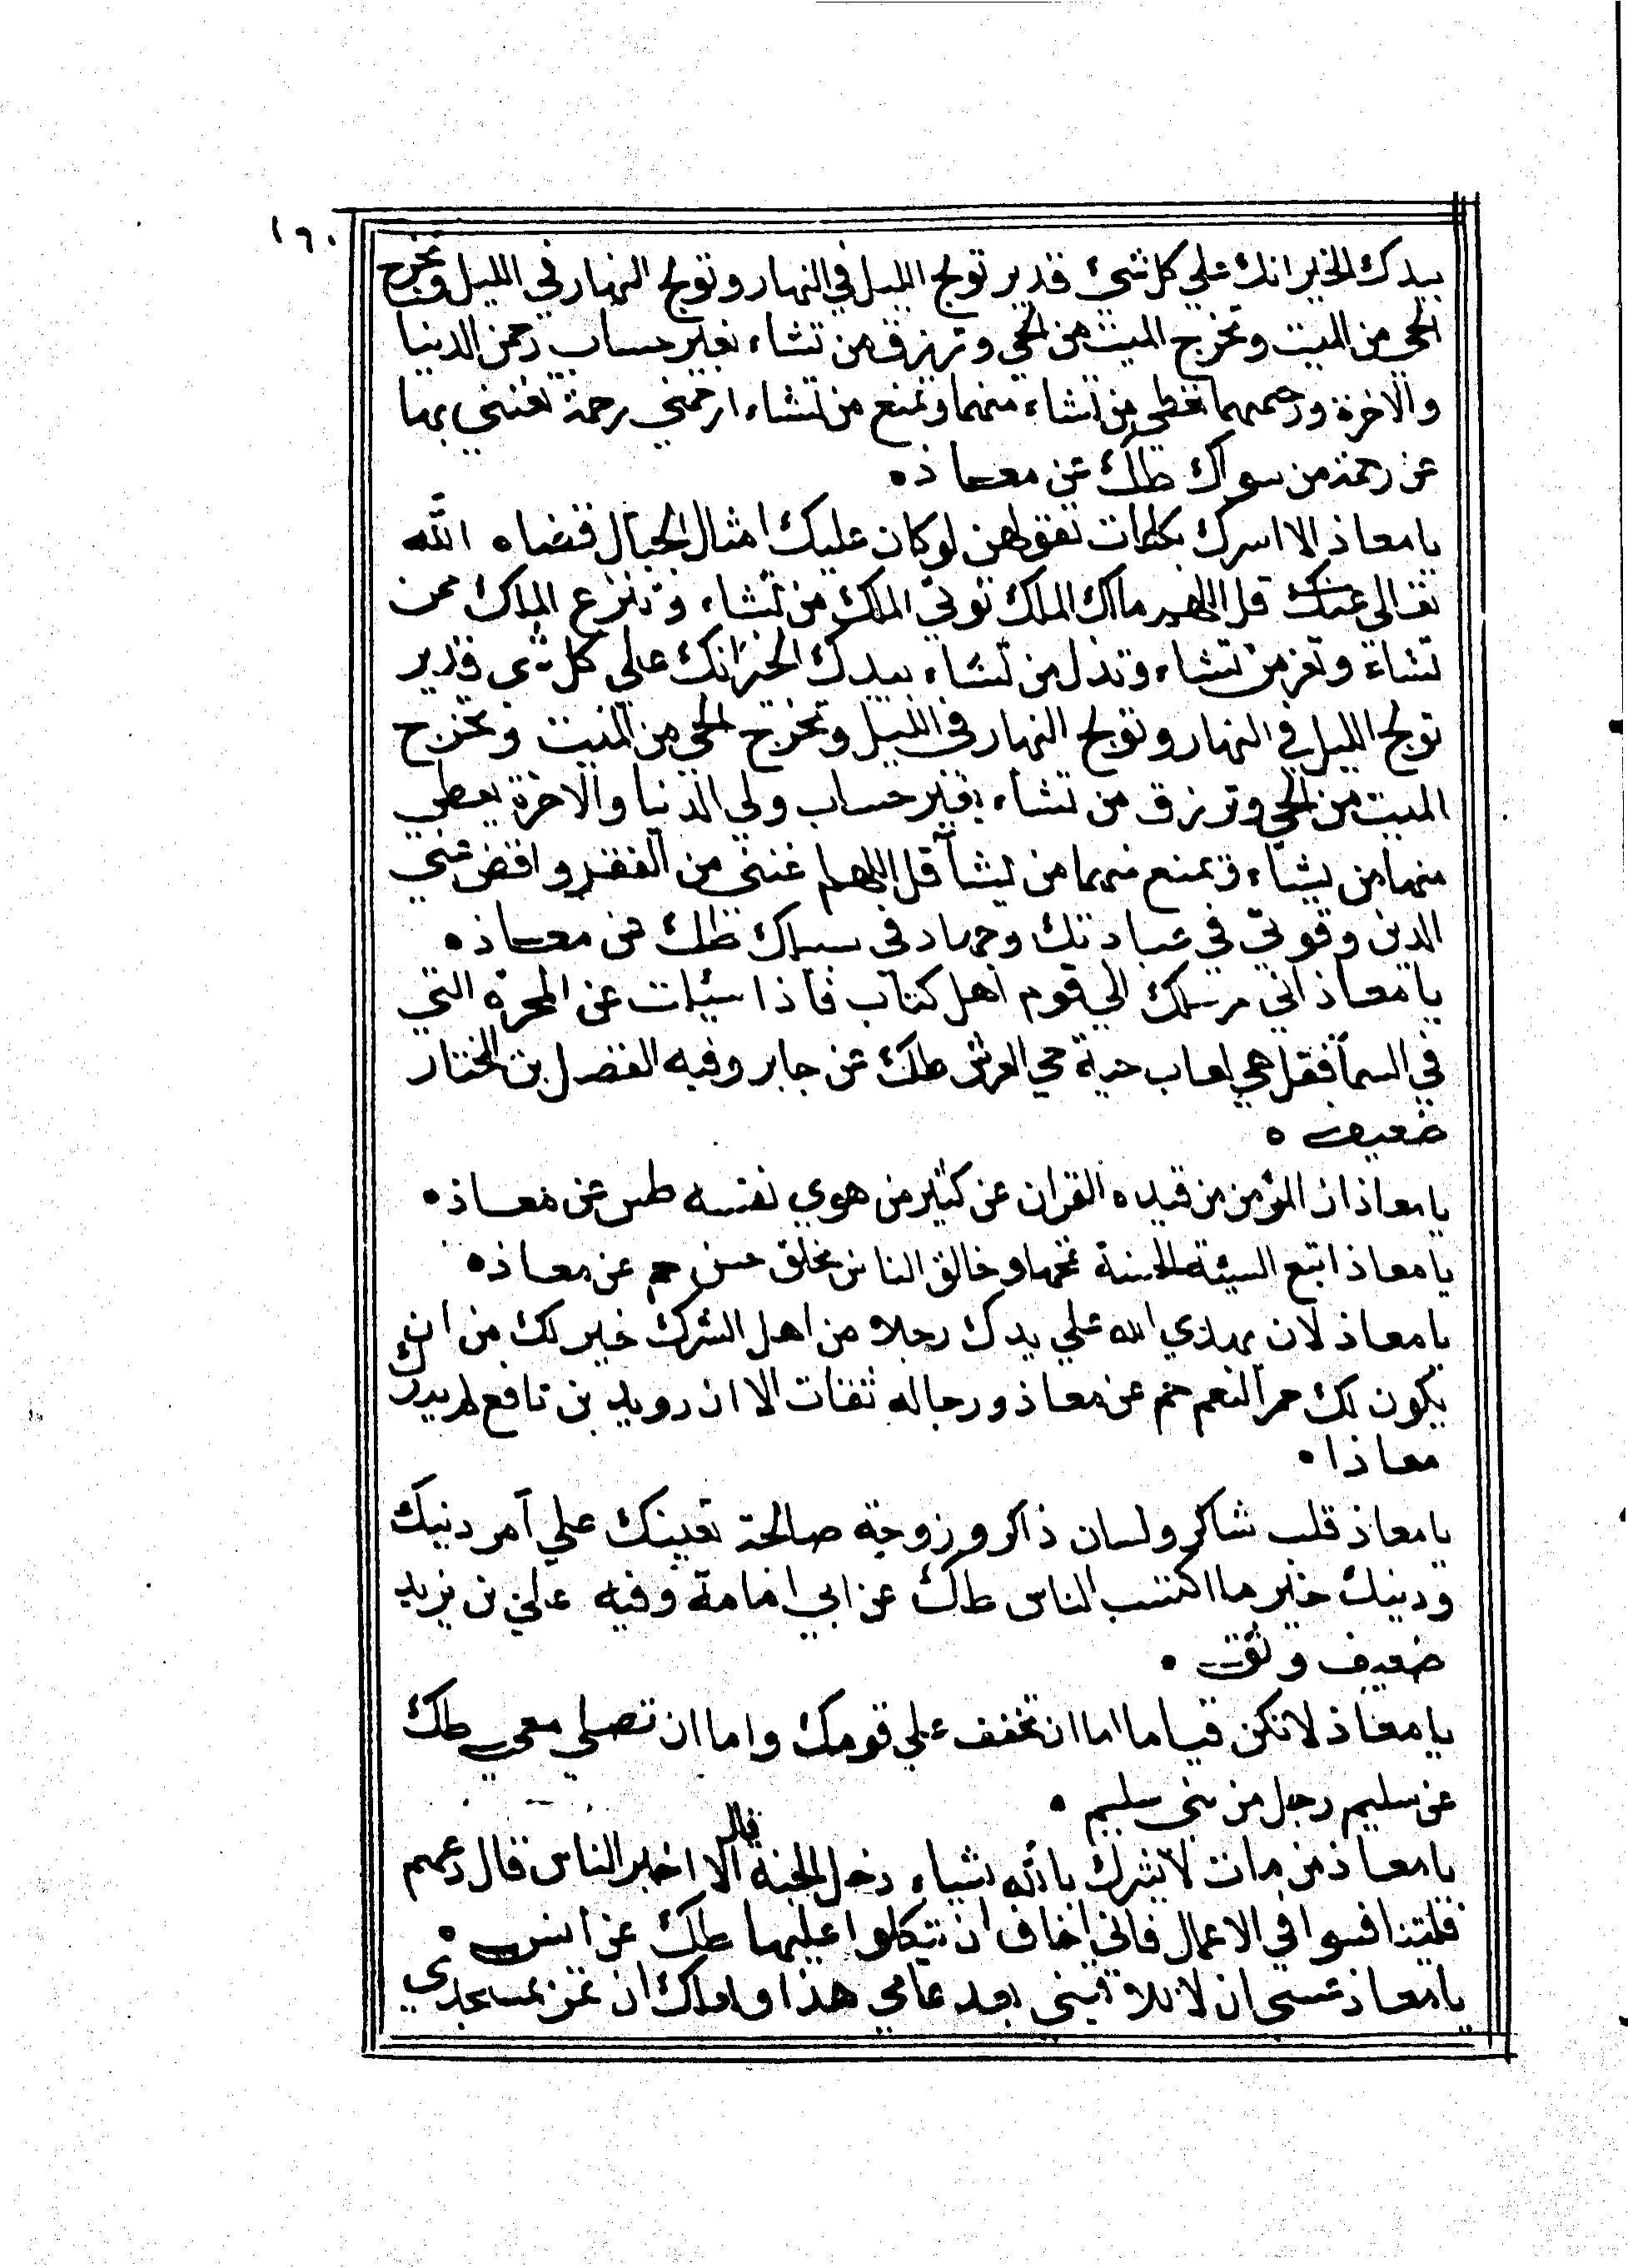 ١٦٠
بيدك الخير انك علي كل شيئ قدير تولج الليل في النهار وتولج النهار في الليل وتخرج
الحي من الميت وتخرج الميت من الحي وترزق من تشاء بغير حساب رحمن الدنيا
والاخرة ورحيمهما تعطي من تشاء منهما وتمنع من تشاء ارحمني رحمة تغنني بها
عن رحمة من سواك طك عن معاذ ه
يا معاذ الا اسرك بكلمات تقولهن لو كان عليك امثال الجبال قضاه الله
تعالى عنك قل اللهم مالك الملك توتي الملك من تشاء وتنزع الملك ممن
تشاء وتعز من تشاء وتذل من تشاء بيدك الخير انك علي كل شي قدير
تولج الليل في النهار وتولج النهار في الليل وتخرج الحي من الميت وتخرج
الميت من الحي وترزق من تشاء بغير حساب ولي الدنيا والاخرة يعطي
منهما من يشاء ويمنع منهما من يشآ قل اللهم اغنني من الفقر واقض عني
الدين وقوني في عبادتك وجهاد في سبيلك طك عن معاذ ه
يا معاذ اني مرسلك الي قوم اهل كتاب فاذا سيلت عن المجرة التي
في السمآ فقل هي لعاب حية تحت العرش طك عن جابر وفيه الفضل بن المختار
ضعيف ه
يا معاذ ان المؤمن من قيده القران عن كثير من هوي نفسه طس عن معاذ ه
يا معاذ اتبع السيئة الحسنة تمحها وخالق الناس بخلق حسن حم عن معاذ ه
يا معاذ لان يهدي الله علي يدك رجلا من اهل الشرك خير لك من ان
يكون لك حمر النعم حم عن معاذ ورجاله ثقات الا ان رويد بن نافع لم يدرك
معاذا ه
يا معاذ قلب شاكر ولسان ذاكر وزوجة صالحة تعينك علي أمر دنياك
ودينك خير ما اكتسب الناس طك عن ابي امامة وفيه علي بن يزيد
ضعيف وثق ه
يا معاذ لا تكن فتانا اما ان تخفف علي قومك واما ان تصلي معي طك
عن سليم رجل من بني سليم ه
يا معاذ من مات لا يشرك بالله شياء دخل الجنة قال الا اخبر الناس قال دعهم
فليتنافسوا في الاعمال فاني اخاف ان يتكلوا عليها طك عن أنس ه
يا معاذ عسى ان لا تلاقيني بعد عامي هذا ولعلك ان تمر بمسجدي